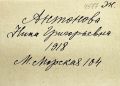 Антонова
Нина Григорьевна
1918
М. Морская 104